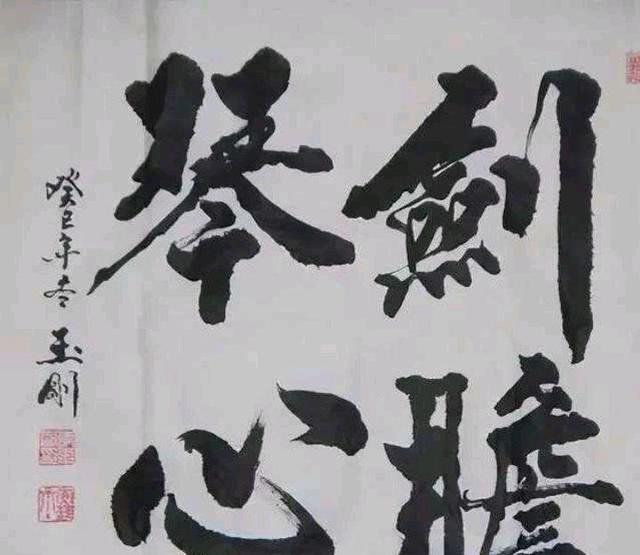 劍膽
琴心
癸巳年冬 玉剛